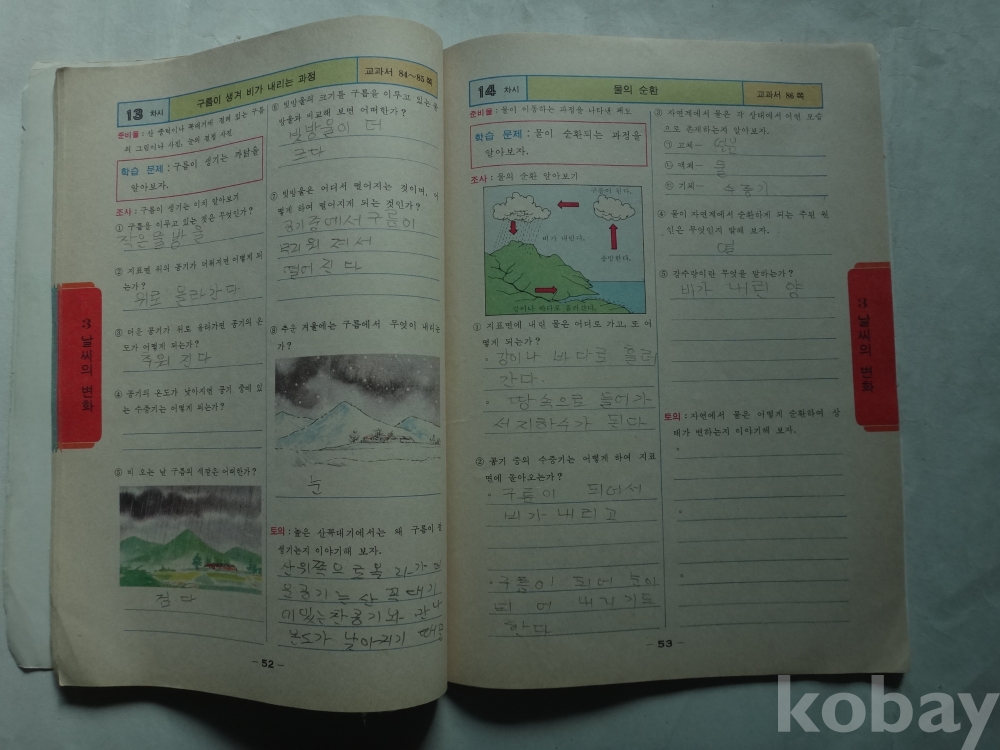 13 차시
구름이 생겨 비가 내리는 과정
교과서 84~85 쪽
준비물 : 산 중턱이나 꼭대기에 걸쳐 있는 구름
의 그림이나 사진, 눈의 결정 사진
학습 문제 : 구름이 생기는 까닭을
알아보자.
조사 : 구름이 생기는 이치 알아보기
① 구름을 이루고 있는 것은 무엇인가?
작은물방울
② 지표면 위의 공기가 더워지면 어떻게 되
는가?
위로 올라간다
③ 더운 공기가 위로 올라가면 공기의 온
도가 어떻게 되는가?
④ 공기의 온도가 낮아지면 공기 중에 있
는 수증기는 어떻게 되는가?
⑤ 비 오는 날 구름의 색깔은 어떠한가?
검다
⑥ 빗방울의 크기를 구름을 이루고 있는 물
방울과 비교해 보면 어떠한가?
빗방울이 더
크다
⑦ 빗방울은 어디서 떨어지는 것이며, 어
떻게 하여 떨어지게 되는 것인가?
공기중에서 구름이
떨어진다
⑧ 추운 겨울에는 구름에서 무엇이 내리는
가?
눈
토의 : 높은 산꼭대기에서는 왜 구름이 잘
생기는지 이야기해 보자.
산위쪽으로 올라가
공기는 산꼭대기
에있는찬공기와 만나
온도가 낮아지기 때문
- 52 -
3 날씨의 변화
14 차시
물의 순환
교과서 86 쪽
준비물 : 물이 이동하는 과정을 나타낸 괘도
학습 문제 : 물이 순환되는 과정을
알아보자.
조사 : 물의 순환 알아보기
구름이 된다.
비가 내린다.
증발한다.
강이나 바다로 흘러간다.
① 지표면에 내린 물은 어디로 가고, 또 어
떻게 되는가?
· 강이나 바다로 흘러
간다.
· 땅속으로 들어가
서 지하수가 된다
② 공기 중의 수증기는 어떻게 하여 지표
면에 돌아오는가?
· 구름이 되어서
비가 내리고
· 구름이 되어
내리기도
한다
③ 자연계에서 물은 각 상태에서 어떤 모습
으로 존재하는지 알아보자.
㉠ 고체- 얼음
㉡ 액체- 물
㉢ 기체- 수증기
④ 물이 자연계에서 순환하게 되는 주된 원
인은 무엇인지 말해 보자.
열
⑤ 강수량이란 무엇을 말하는가?
비가 내린 양
토의 : 자연에서 물은 어떻게 순환하여 상
태가 변하는지 이야기해 보자.
- 53 -
3 날씨의 변화
kobay